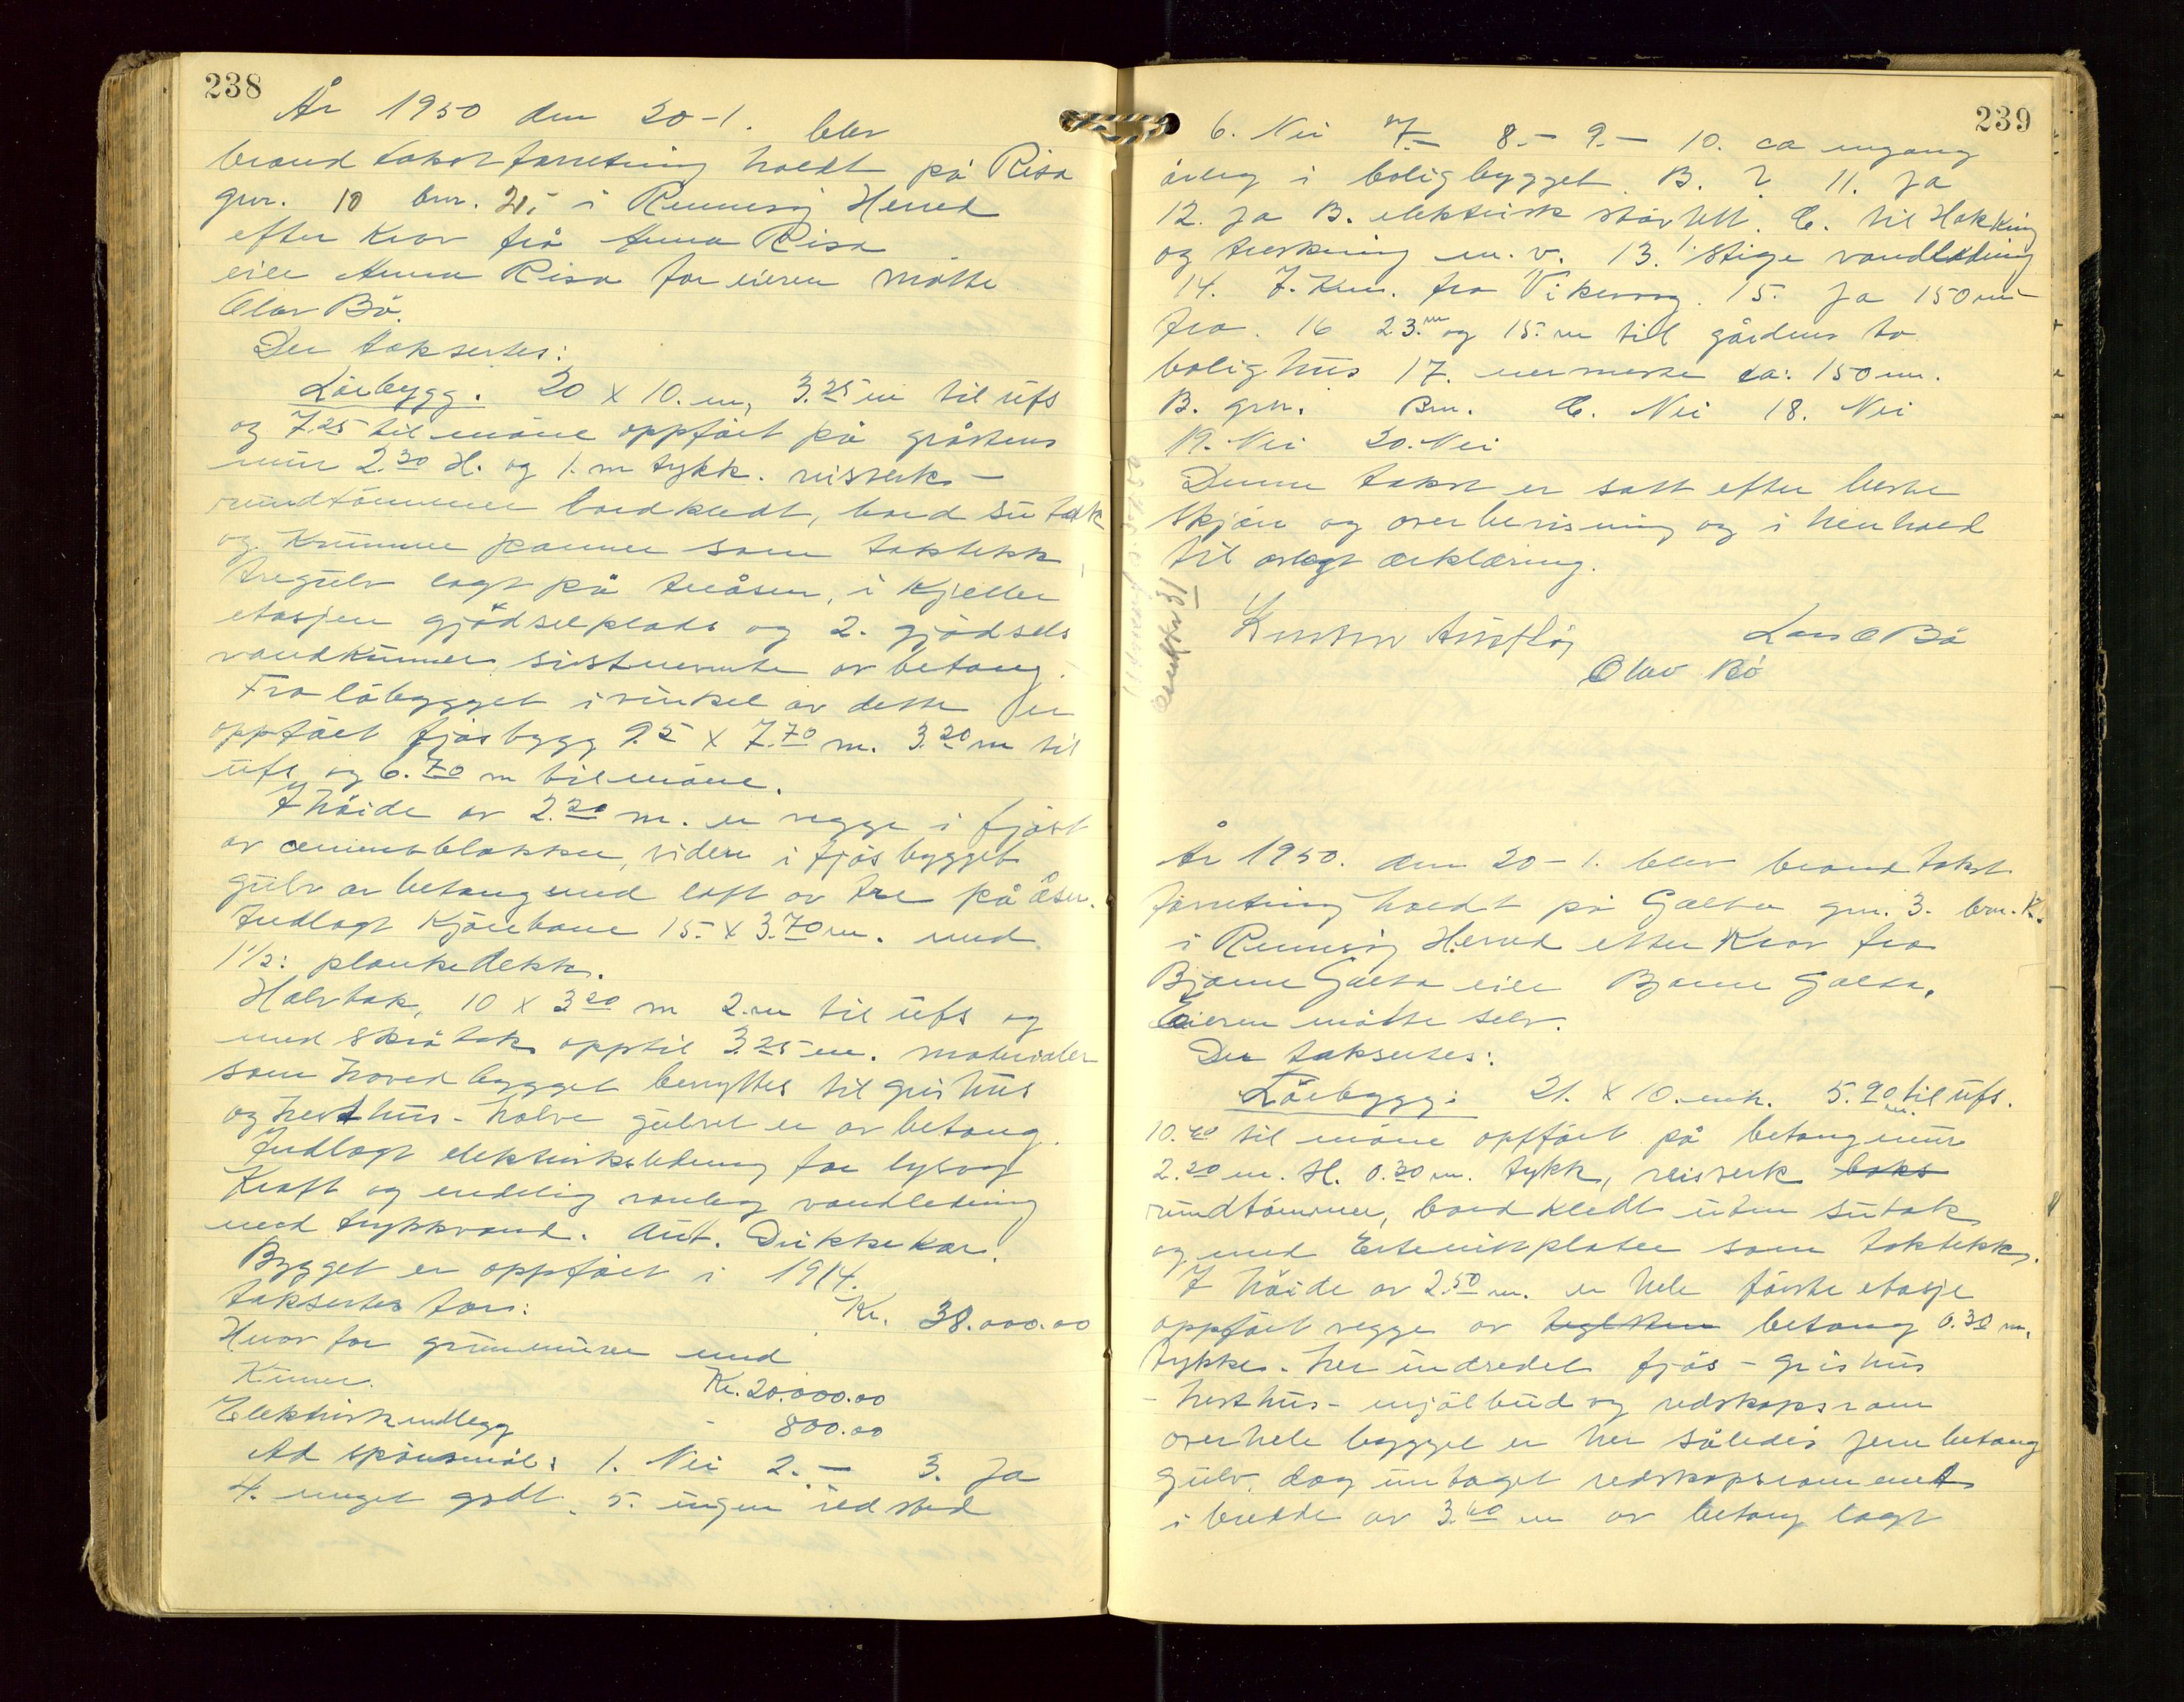 238
År 1950 den 20-1. blev
brandtakstforretning holdt på Risa
gnr. 10 bnr. 21, i Rennesøy Herred
efter krav frå Anna Risa
eier Anna Risa for eieren møtte
Olav Bø.
Der taksertes:
Løebygg. 20 x 10. m, 3.25 m til ufs
og 7.25 til møne oppført på gråstens
mur 2.30 H. og 1. m tykk. reisverk-
rundtømmer bordkledt, bord sutak
og krumme panner som taktekk,
tregulv lagt på treåser, i kjeller
etasjen gjødselplads og 2. gjødsels
vandkummer, sistnevnte av betong.
Fra løbygget i vinkel av dette er
oppført fjøsbygg 9.5 x 7.70 m. 3.20 m til
ufs og 6.70 m til møne.
I høide av 2.20 m. er vegge i fjøset
av cementblokker, videre i fjøsbygget
gulv av betong med loft av tre på åser.
Indlagt kjørebane 15. x 3.70 m. med
1 1/2: plankedekke.
Halvtak, 10 x 3.20 m 2. m til ufs og
med skråtak opptil 3.25 m. materialer
som hovedbygget benyttes til grishus
og hesthus - halve gulvet er av betong.
Indlagt elektriskledning for lys og
Kraft og endelig vanleg vandledning
med trykkvand. Aut. Drikkekar.
Bygget er oppført i 1914.
taksertes for: Kr. 38.000.00
Hvor for grunmuren med
Kumer. Kr. 20.000.00
Elektriskindlegg - 800.00
Ad spørsmål: 1. Nei 2. - 3. Ja
4. meget godt. 5. ingen ildsted
239
6. Nei 7.- 8.- 9.- 10. ca engang
årleg i boligbygget. B. ? 11. Ja
12. Ja B. elektrisk C. til Hakking
og treskning m. v. 13. 1. stige vandledning
14. 7. Km. fra Vikevåg. 15. Ja 150 m
fra. 16 23. m og 15. m til gårdens to
bolighus 17. nermeste ca: 150 m.
B. gnr. Bnr. C. Nei 18. Nei
19. Nei 20. Nei
Denne takst er satt efter beste
skjøn og overbevisning og i henhold
til avlagt erklæring.
Lars O Bø
Olav Bø
År 1950. den 20-1. blev brandtakst
forretning holdt på Galta gnr. 3. bnr.
i Rennesøy Herred etter Krav fra
Bjarne Galta eier Bjarne Galta.
Eieren møtte selv.
Der taksertes:
Løebygg: 21. x 10. 5.90 m. til ufs.
10.40 til møne oppført på betongmur
2.20 m. H. 0.30 m. tykk, reisverk
rundtømmer, bordkledt uten sutak
og med Eternittplater som taktekk.
I høide av 2.50 m. er hele første etasje
oppført vegge av teglsten betong 0.30 m.
tykke. her indredet fjøs - grishus
- hesthus - mjølbud og redskapsrom
over hele bygget er her således jernbetong
gulv. dog untaget redskapsrommet
i bredde av 3.60 m av betong lagt